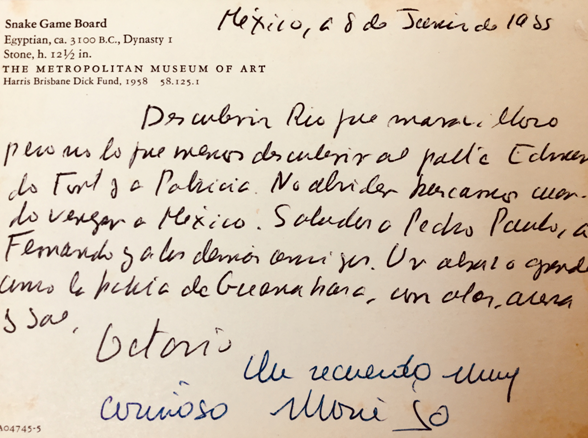 Snake Game Board
Egyptian, ca. 3100 B.C., Dynasty 1
Stone, h. 12½ in.
THE METROPOLITAN MUSEUM OF ART
Harris Brisbane Dick Fund, 1958 58.125.1
México, a 8 de Junio de 1985
Descubrir Rio fue maravilloso
pero no lo fue menos descubrir al poeta Eduar
do y a Patricia. No olviden buscarnos cuan-
do vengan a México. Saludos a Pedro Paulo, a
Fernando y a los demás amigos. Un abrazo grande
como la bahía de Guanabara, con olas, arena
y sol,
Octavio
Un recuerdo muy
cariñoso Marie Jo
A04745-5